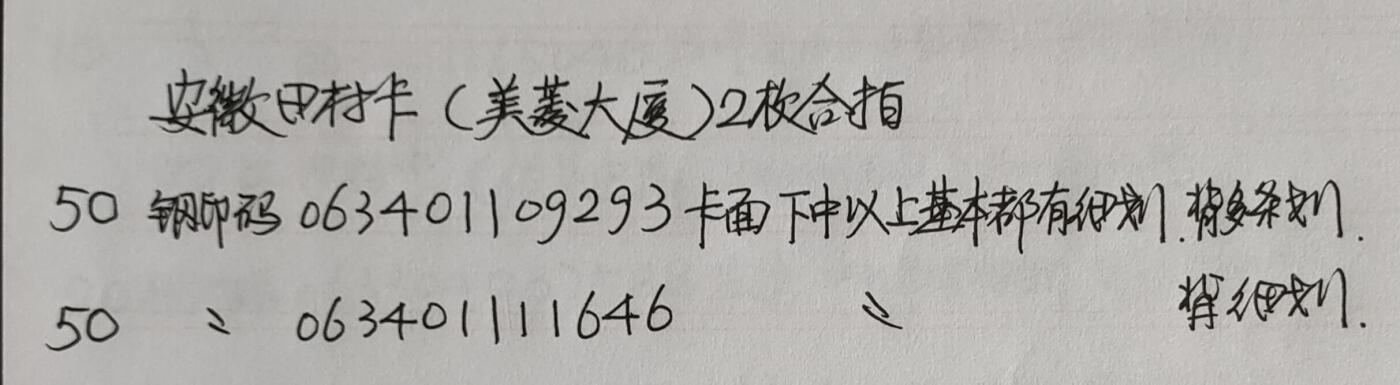 安徽田村卡（美菱大厦）2枚合拍
50 钢印码 063401109293 卡面下中以上基本都有细划.背多条划.
50 〃 063401111646 〃 背细划.